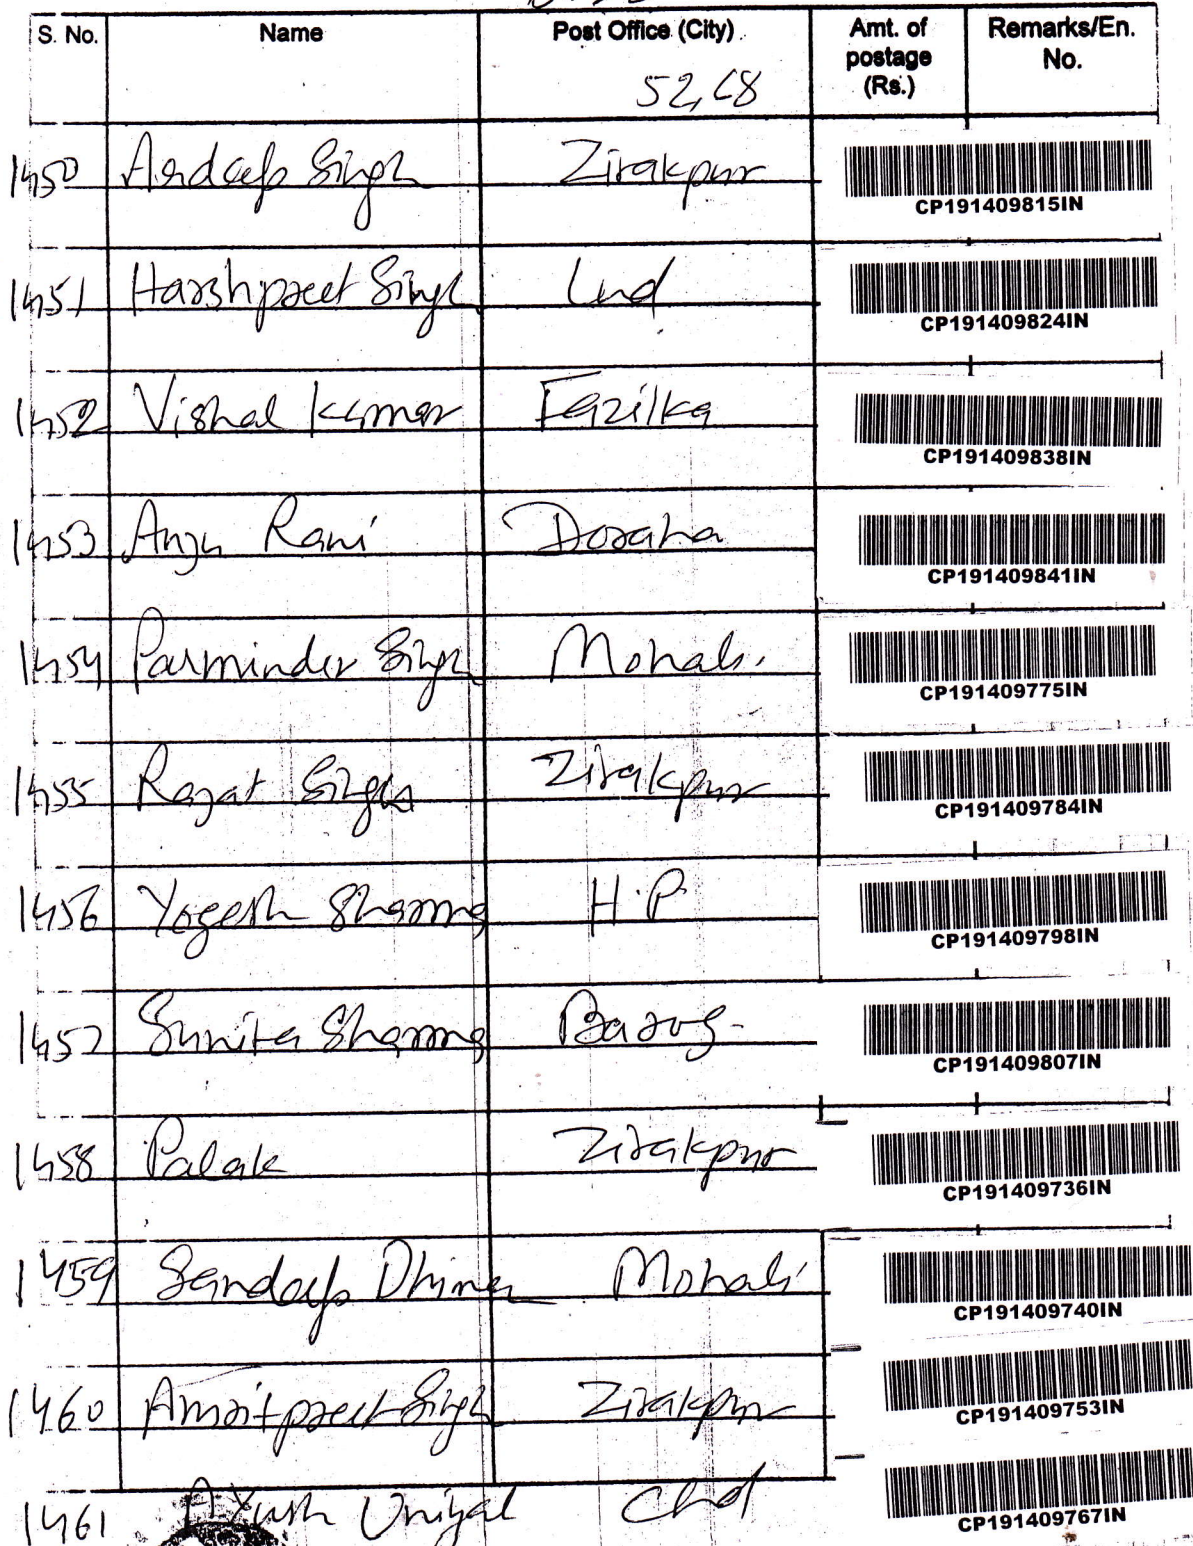 S. No. Name Post Office (City) Amt. of postage (Rs.) Remarks/En. No.
52,68
1450 Ardeep Singh Zirakpur CP191409815IN
1451 Harshpreet Singh Lnd CP191409824IN
1452 Vishal Kumar Fazilka CP191409838IN
1453 Anju Rani Doraha CP191409841IN
1454 Parminder Singh Mohali. CP191409775IN
1455 Rajat Singla Zirakpur CP191409784IN
1456 Yogesh Sharma H.P. CP191409798IN
1457 Sunita Sharma Barog- CP191409807IN
1458 Palak Zirakpur CP191409736IN
1459 Sandeep Dhiman Mohali CP191409740IN
1460 Amritpreet Singh Zirakpur CP191409753IN
1461 Ayush Uniyal Chd CP191409767IN